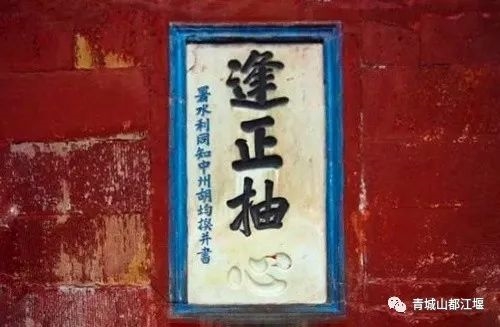 逢正抽心
署水利同知中州胡均撰并書
青城山都江堰